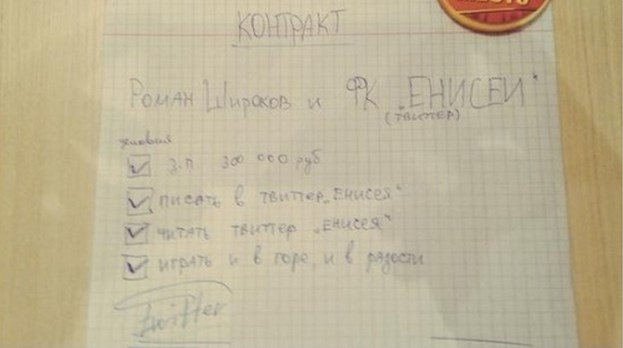 КОНТРАКТ
РОМАН ШИРОКОВ И ФК „ЕНИСЕЙ“
(ТВИТТЕР)
условия
З.П. 300 000 руб
ПИСАТЬ В ТВИТТЕР „ЕНИСЕЯ“
ЧИТАТЬ ТВИТТЕР „ЕНИСЕЯ“
ИГРАТЬ И В ГОРЕ, И В РАДОСТИ
Twitter